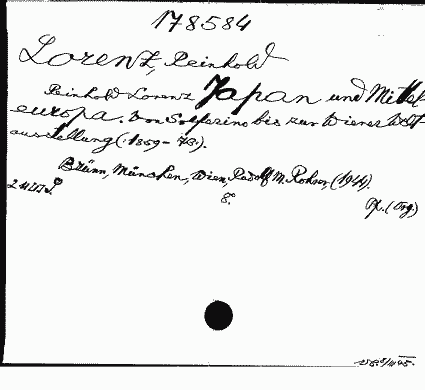 178584
Lorenz, Reinhold
Reinhold Lorenz Japan und Mittel-
europa. Von Solferino bis zur Wiener Welt-
ausstellung (1859-73.).
Brünn, München, Wien, Rudolf M. Rohrer, (1944).
8.